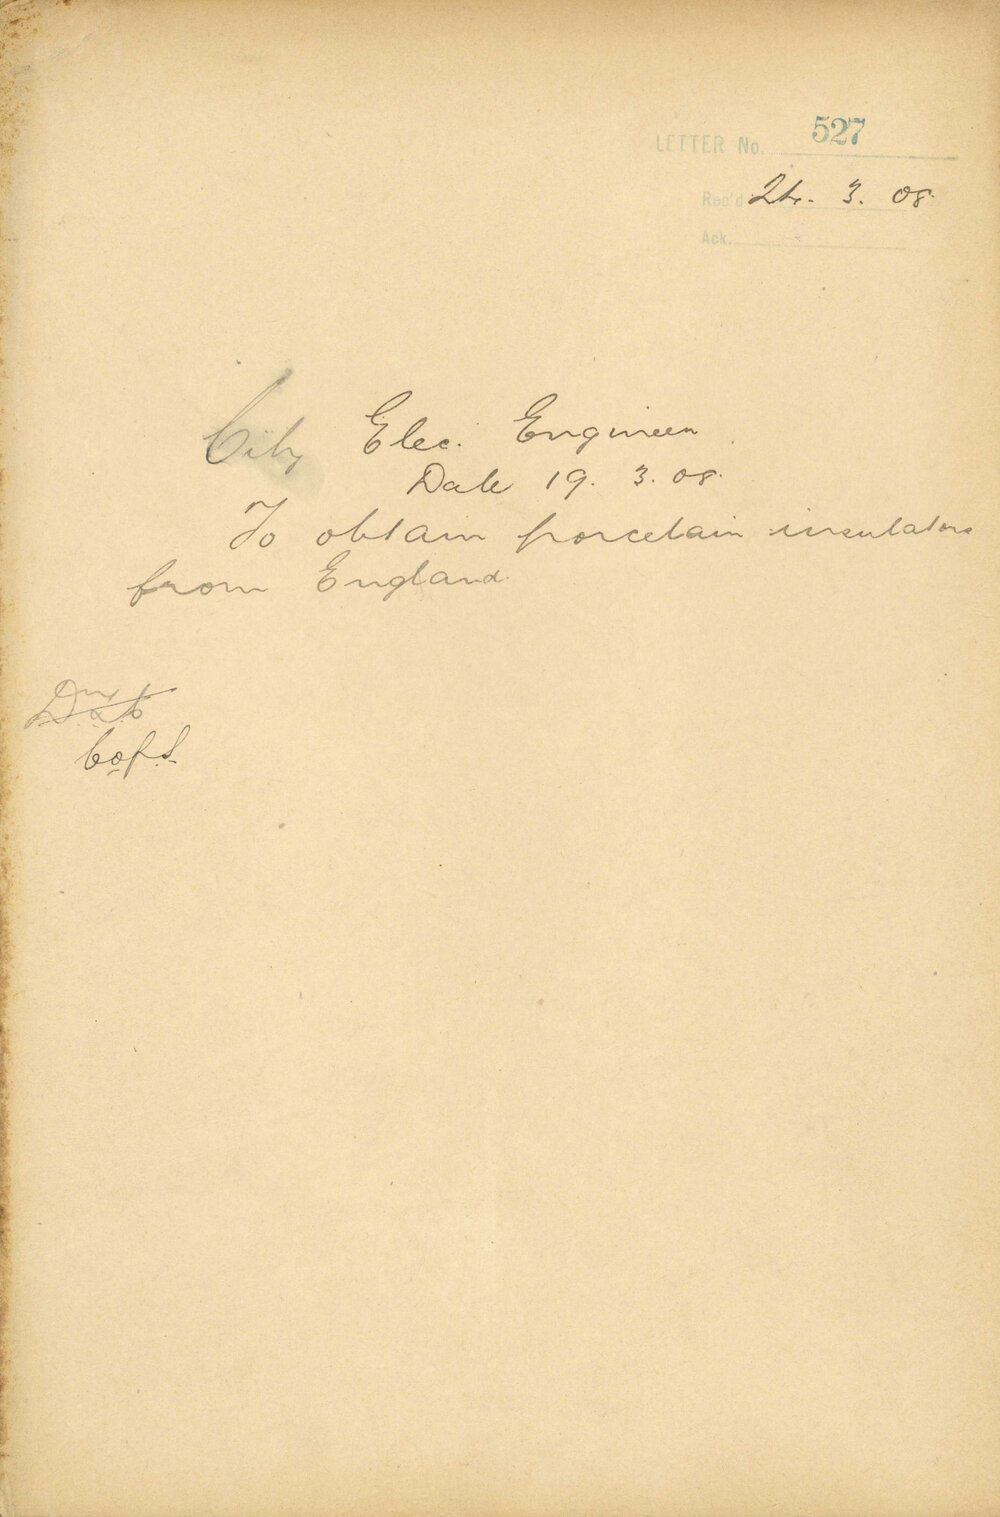 LETTER No. 527
Rec'd 24. 3. 08.
Ack.
City Elec. Engineer
Date 19. 3. 08.
To obtain porcelain insulators
from England.
C of S.